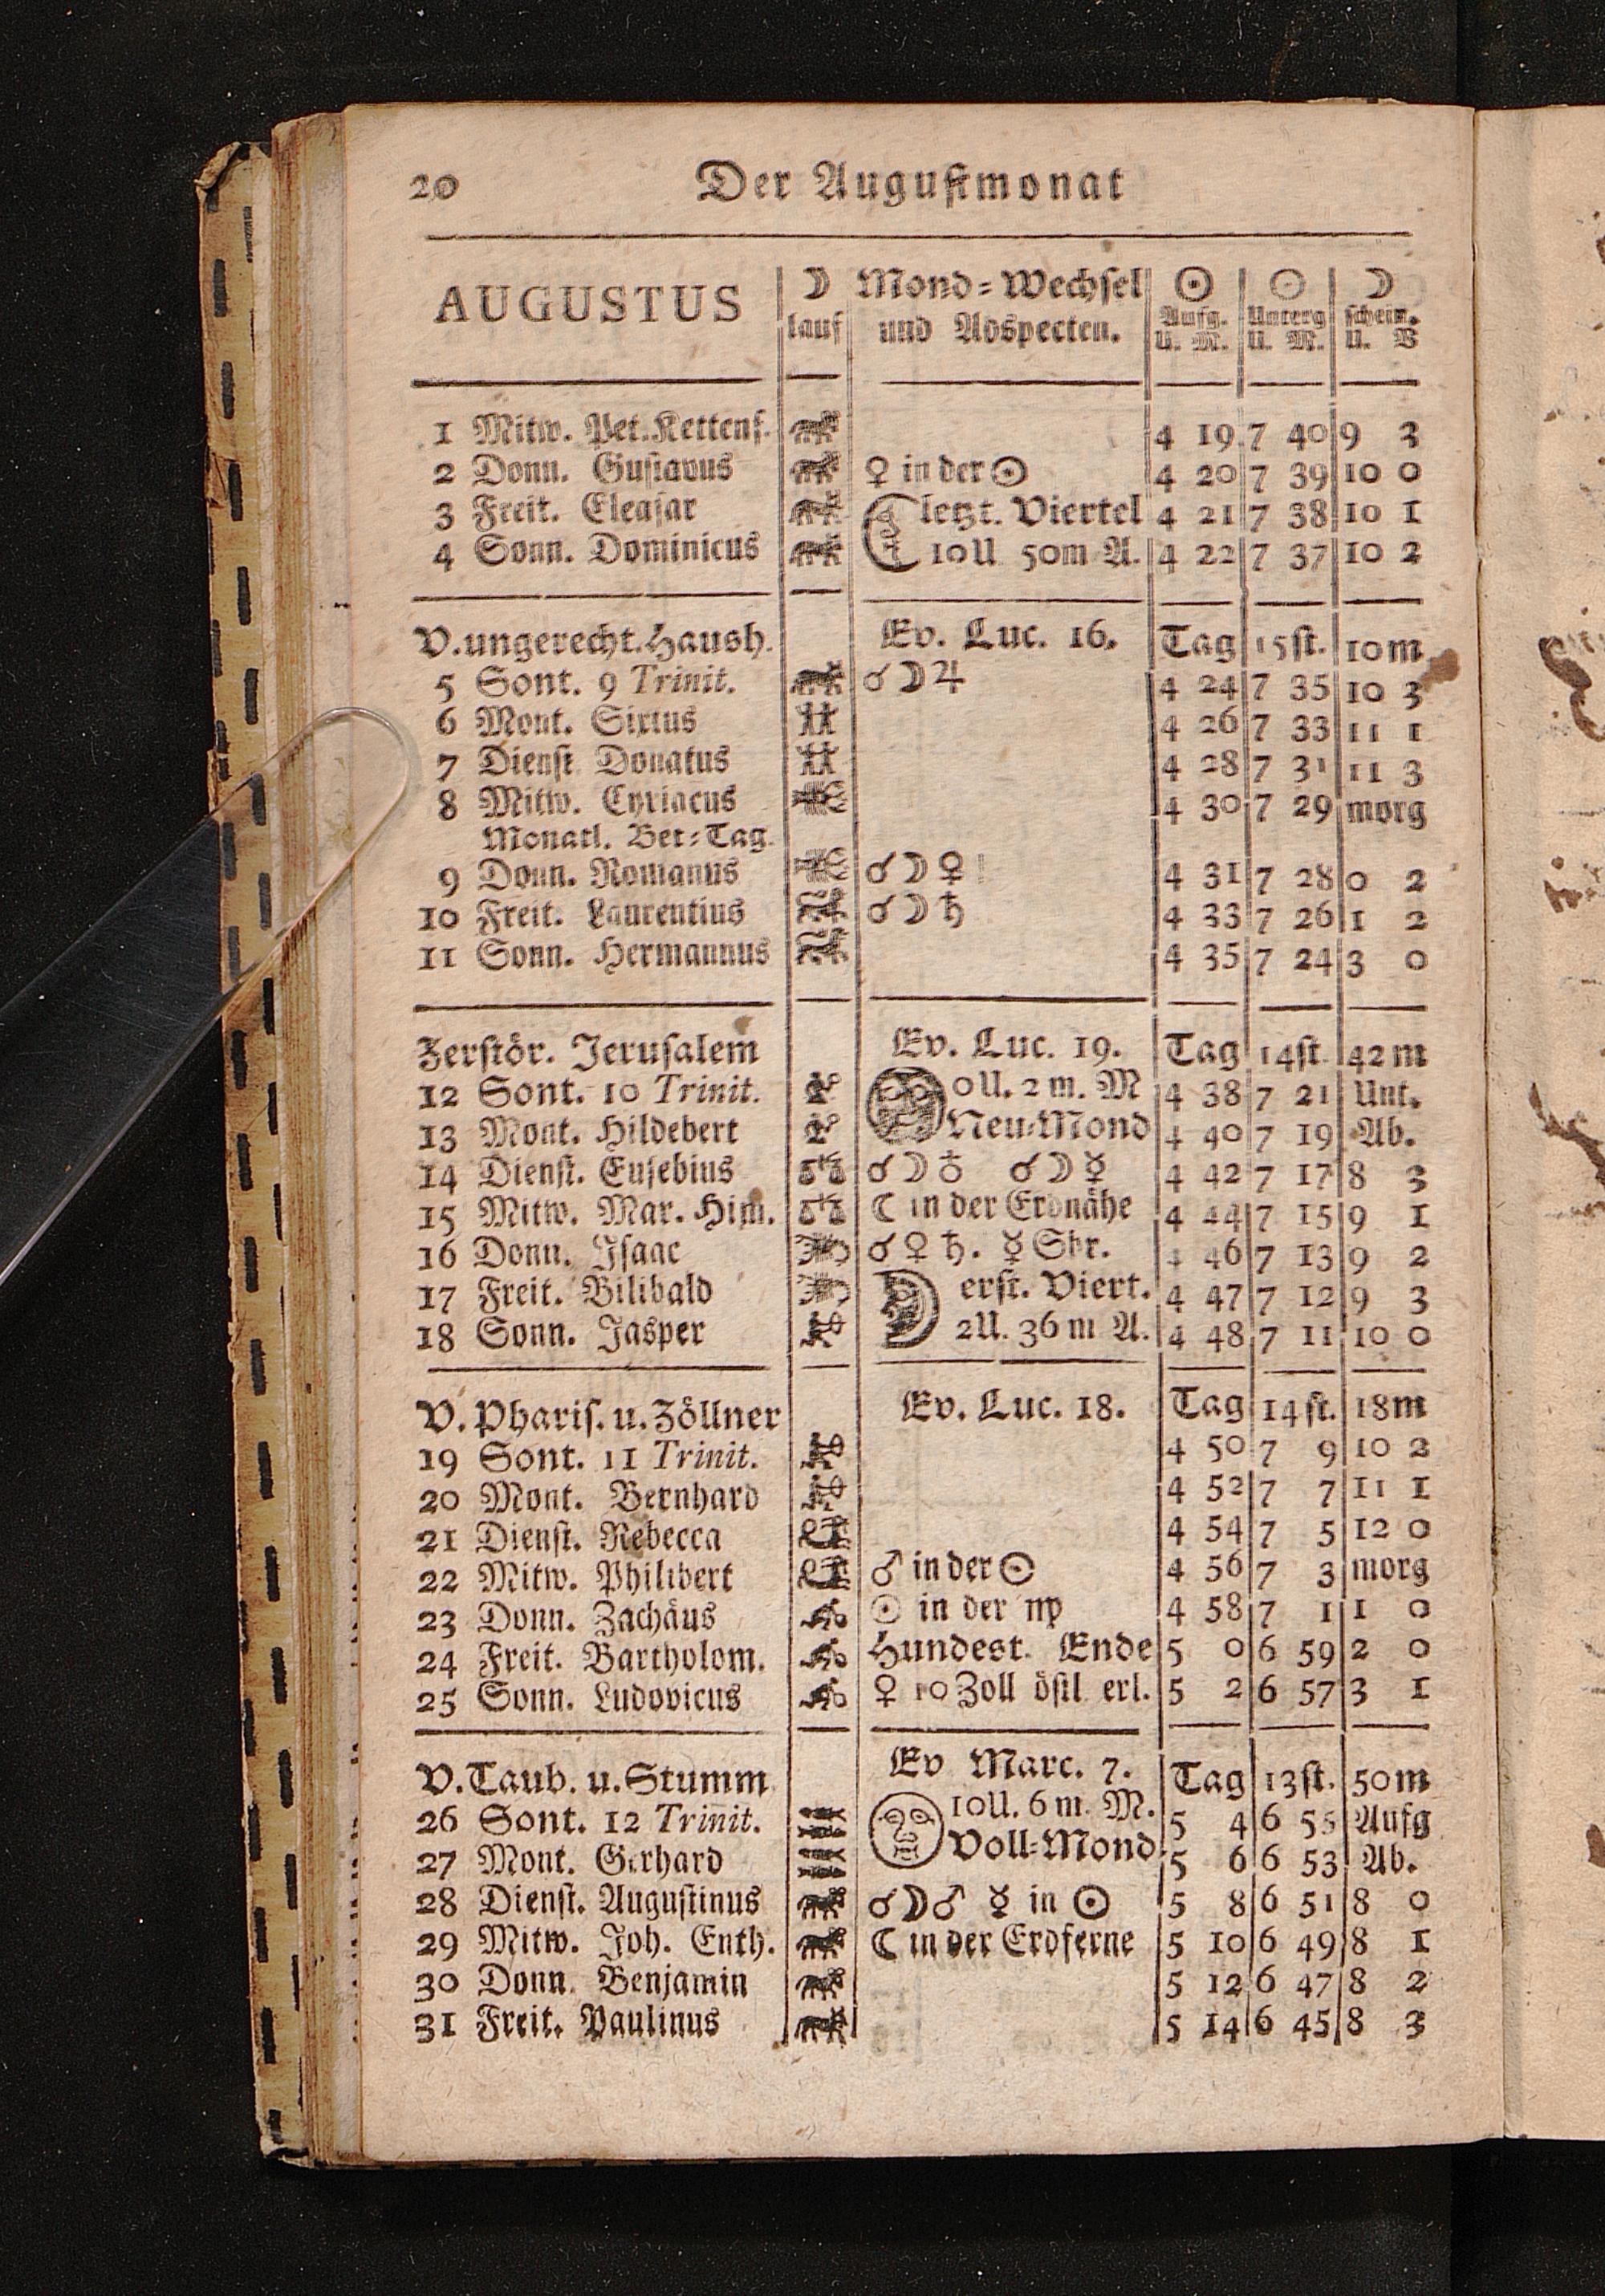 20 Der Augustmonat
AUGUSTUS ☽ Mond=Wechsel ☉ ☉ ☽
lauf und Adspecten. Aufg. Unterg schein.
U. M. U. M. U. V
1 Mitw. Pet. Kettenf. 4 19 7 40 9 3
2 Donn. Gustavus ♀ in der ☉ 4 20 7 39 10 0
3 Freit. Eleasar letzt. Viertel 4 21 7 38 10 1
4 Sonn. Dominicus 10U 50m A. 4 22 7 37 10 2
V. ungerecht. Haush. Ev. Luc. 16. Tag 15st. 10m
5 Sont. 9 Trinit. ☌☽♃ 4 24 7 35 10 3
6 Mont. Sixtus 4 26 7 33 11 1
7 Dienst Donatus 4 28 7 31 11 3
8 Mitw. Cyriacus 4 30 7 29 morg
Monatl. Bet=Tag.
9 Donn. Romanus ☌☽♀ 4 31 7 28 0 2
10 Freit. Laurentius ☌☽♄ 4 33 7 26 1 2
11 Sonn. Hermannus 4 35 7 24 3 0
Zerstör. Jerusalem Ev. Luc. 19. Tag 14st. 42m
12 Sont. 10 Trinit. 0U. 2m. M 4 38 7 21 Unt.
13 Mont. Hildebert Neu=Mond 4 40 7 19 Ab.
14 Dienst. Eusebius ☌☽♁ ☌☽☿ 4 42 7 17 8 3
15 Mitw. Mar. Him. ☾ in der Erdnähe 4 44 7 15 9 1
16 Donn. Isaac ☌♀♄. ☿ Str. 4 46 7 13 9 2
17 Freit. Bilibald erst. Viert. 4 47 7 12 9 3
18 Sonn. Jasper 2U. 36m A. 4 48 7 11 10 0
V. Pharis. u. Zöllner Ev. Luc. 18. Tag 14st. 18m
19 Sont. 11 Trinit. 4 50 7 9 10 2
20 Mont. Bernhard 4 52 7 7 11 1
21 Dienst. Rebecca 4 54 7 5 12 0
22 Mitw. Philibert ♂ in der ☉ 4 56 7 3 morg
23 Donn. Zachäus ☉ in der ♍ 4 58 7 1 1 0
24 Freit. Bartholom. Hundest. Ende 5 0 6 59 2 0
25 Sonn. Ludovicus ♀ 10 Zoll östl erl. 5 2 6 57 3 1
V. Taub. u. Stumm Ev Marc. 7. Tag 13st. 50m
26 Sont. 12 Trinit. 10U. 6m. M. 5 4 6 55 Aufg
27 Mont. Gerhard Voll=Mond 5 6 6 53 Ab.
28 Dienst. Augustinus ☌☽♂ ☿ in ☉ 5 8 6 51 8 0
29 Mitw. Joh. Enth. ☾ in der Erdferne 5 10 6 49 8 1
30 Donn. Benjamin 5 12 6 47 8 2
31 Freit. Paulinus 5 14 6 45 8 3